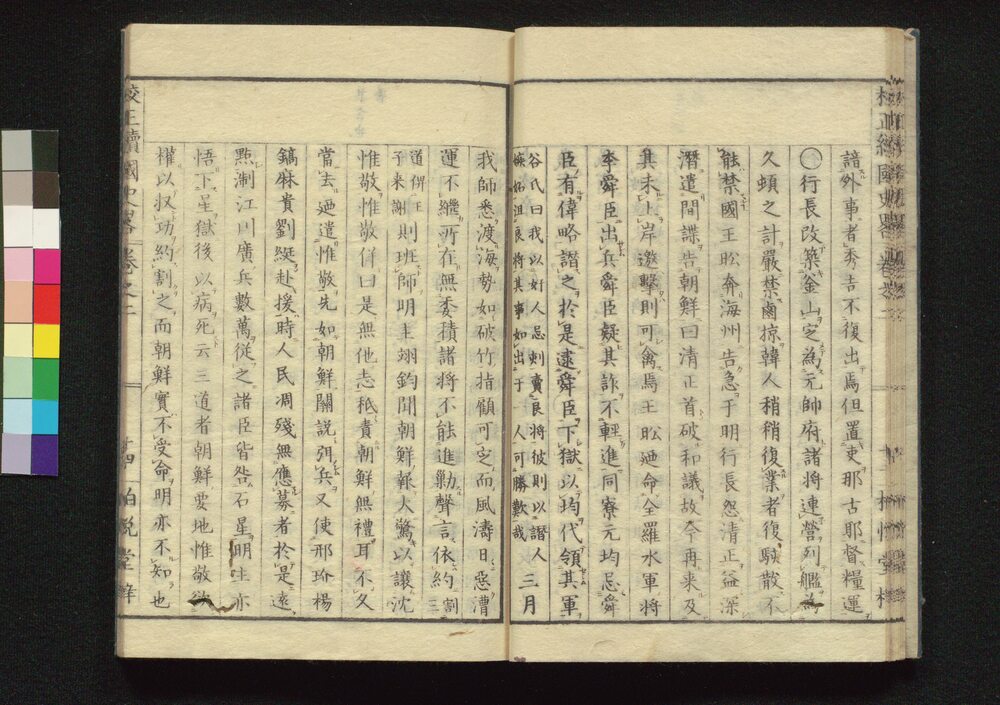 諳外事者秀吉不復出焉但置吏那古耶督糧運
〇行長改築釜山定為元帥府諸將連營列艦為
久頓之計嚴禁鹵掠韓人稍稍復業者復駭散不
能禁國王昖奔海州告急于明行長怨清正益深
潛遣間諜告朝鮮曰清正首破和議故今再来及
其未上岸邀擊則可禽焉王昖廼命全羅水軍將
李舜臣出兵舜臣疑其詐不輕進同寮元均忌舜
臣有偉略譖之於是逮舜臣下獄以均代領其軍
谷氏曰我以奸人忌刺賣良將彼則以譖人
嫉妬沮良將其事如出于一人可勝歎哉
三月
我師悉渡海勢如破竹指顧可乏而風濤日惡漕
運不繼所在無委積諸將不能進勦聲言依約割
三道俾王子来謝
則班師明主翊鈞聞朝鮮報大驚以讓沈
惟敬惟敬佯曰是無他志秖責朝鮮無禮耳不久
當去廼遣惟敬先如朝鮮關説弭兵又使邢玠楊
鎬麻貴劉綎赴援時人民凋殘無應募者於是遠
點淛江川廣兵數萬從之諸臣皆咎石星明主亦
悟下星獄後以病死云三道者朝鮮要地惟敬欲
權以収功約割之而朝鮮實不受命明亦不知也
校正續國史畧 卷之二
十四 柏悅堂梓